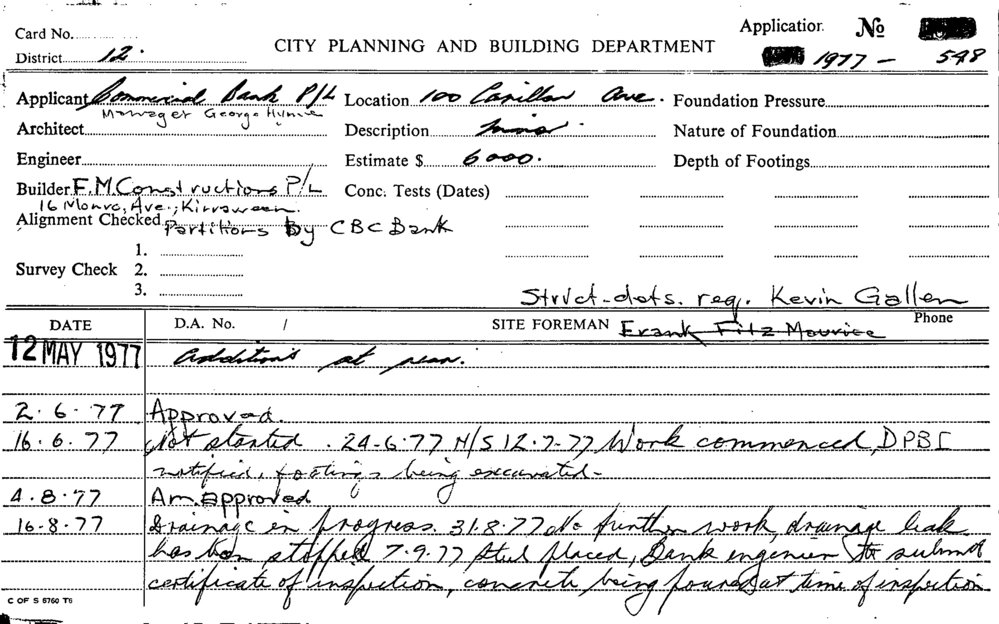 Card No.
District 12.
CITY PLANNING AND BUILDING DEPARTMENT
Application No
1977 - 548
Applicant Commercial Bank P/L
Manager George
Location 100 Carillon Ave.
Foundation Pressure
Architect
Description minor
Nature of Foundation
Engineer
Estimate $ 6000.
Depth of Footings
Builder F.M. Constructions P/L
16 Monro, Ave., Kirraween.
Conc. Tests (Dates)
Alignment Checked Partitions By CBC Bank
1.
Survey Check 2.
3.
Struct-dets. req. Kevin Gallen
DATE
D.A. No. /
SITE FOREMAN Frank Fitz Maurice
Phone
12 MAY 1977 Additions at rear.
2.6.77 Approved.
16.6.77 Not started. 24-6-77 N/S 12-7-77 Work commenced, DPBI
notified, footings being excavated-
4.8.77 Am. approved
16-8.77 Drainage in progress. 31.8.77 No further work, drainage leak
has been stopped 7.9.77 Steel placed, Bank engineer to submit
certificate of inspection, concrete being poured at time of inspection
C OF S 6760 T6